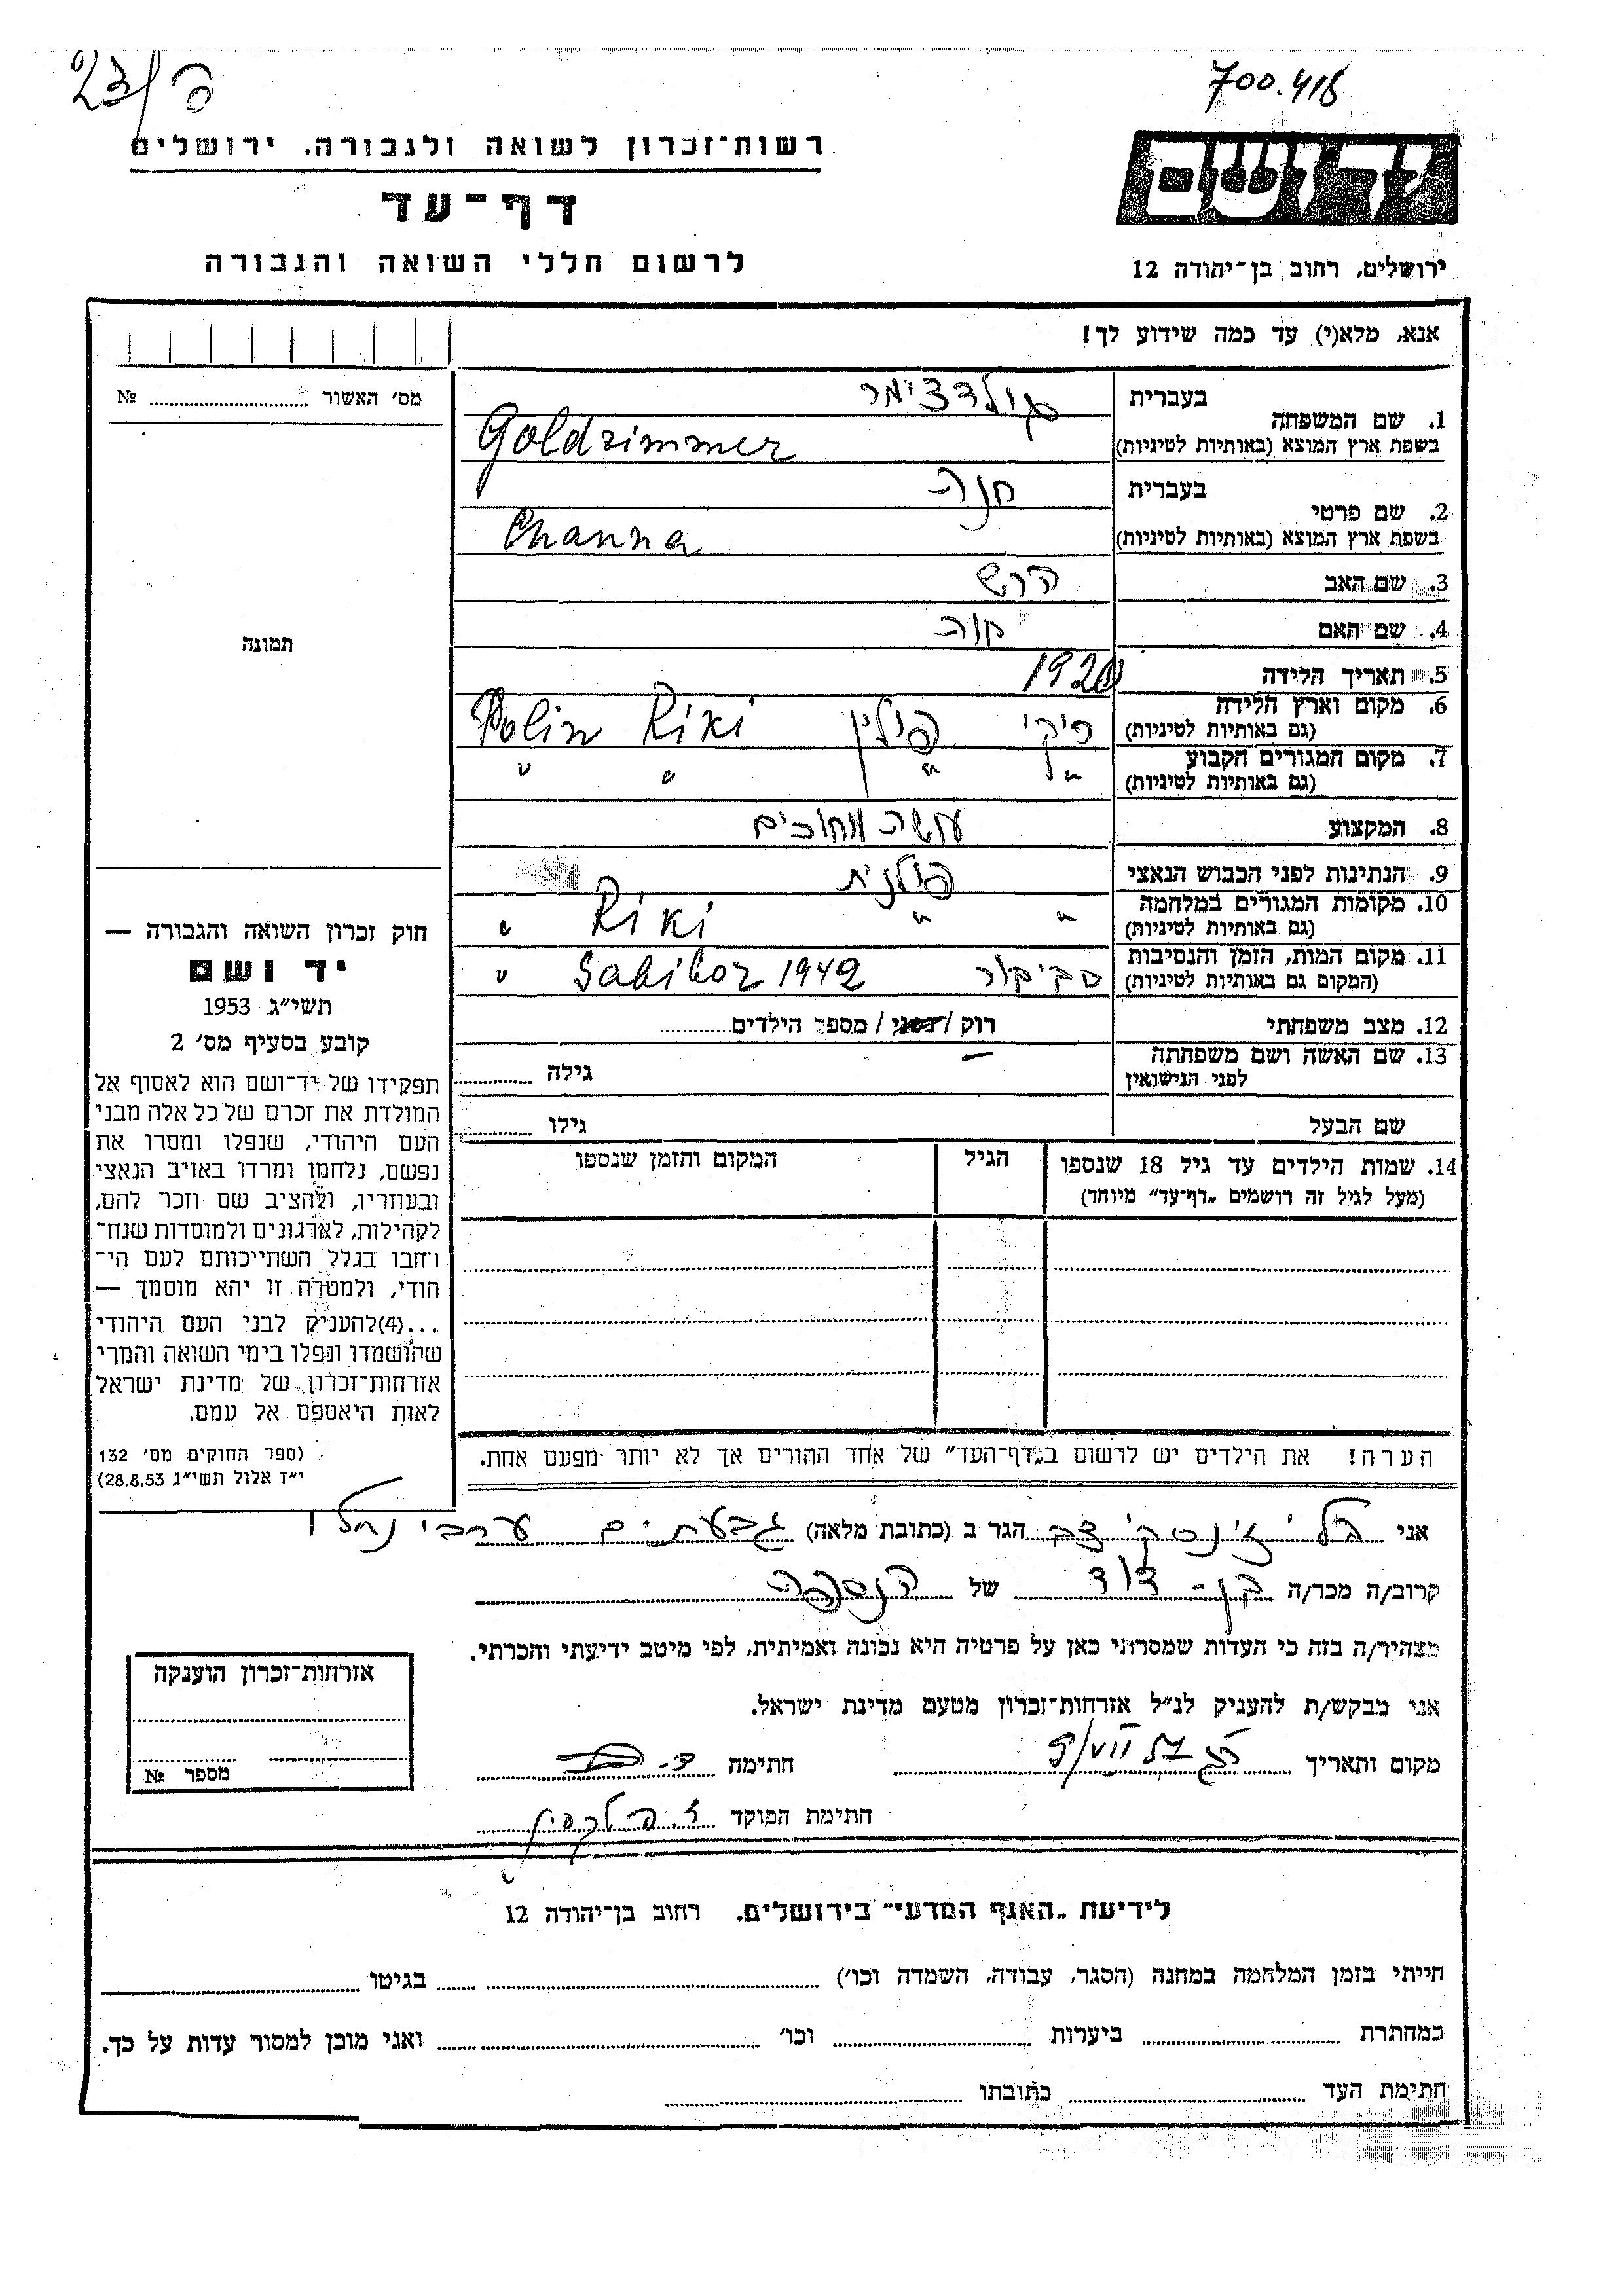 700.418
רשות־זכרון לשואה ולגבורה, ירושלים
יד ושם
דף־עד
לרשום חללי השואה והגבורה
ירושלים, רחוב בן־יהודה 12
אנא, מלא(י) עד כמה שידוע לך!
מס' האשור № 
1. שם המשפחה בעברית גולדצימר
בשפת ארץ המוצא (באותיות לטיניות) Goldzimmer
2. שם פרטי בעברית חנה
בשפת ארץ המוצא (באותיות לטיניות) Channa
3. שם האב הרש
4. שם האם חוה
תמונה
5. תאריך הלידה
6. מקום וארץ הלידה ריקי פולין Riki Polin
(גם באותיות לטיניות)
7. מקום המגורים הקבוע " " " "
(גם באותיות לטיניות)
8. המקצוע עושה מחוכים
9. הנתינות לפני הכבוש הנאצי פולנית
10. מקומות המגורים במלחמה " " Riki "
(גם באותיות לטיניות)
11. מקום המות, הזמן והנסיבות סביבור Sabibor 1942 "
(המקום גם באותיות לטיניות)
12. מצב משפחתי רווק / נשוי / מספר הילדים
13. שם האשה ושם משפחתה גילה
לפני הנישואין
שם הבעל גילו
14. שמות הילדים עד גיל 18 שנספו הגיל המקום והזמן שנספו
(מעל לגיל זה רושמים „דף־עד" מיוחד)
חוק זכרון השואה והגבורה —
יד ושם
תשי"ג 1953
קובע בסעיף מס' 2
תפקידו של יד־ושם הוא לאסוף אל
המולדת את זכרם של כל אלה מבני
העם היהודי, שנפלו ומסרו את
נפשם, נלחמו ומרדו באויב הנאצי
ובעוזריו, ולהציב שם וזכר להם,
לקהילות, לארגונים ולמוסדות שנח־
רחבו בגלל השתייכותם לעם הי־
הודי, ולמטרה זו יהא מוסמך —
...(4)להעניק לבני העם היהודי
שהושמדו ונפלו בימי השואה והמרי
אזרחות־זכרון של מדינת ישראל
לאות היאספם אל עמם.
(ספר החוקים מס' 132
י"ז אלול תשי"ג 28.8.53)
הערה! את הילדים יש לרשום ב„דף־העד" של אחד ההורים אך לא יותר מפעם אחת.
אני הגר ב (כתובת מלאה) גבעתיים ערבי נחל
קרוב/ה מכר/ה בן-דוד של הנספה
מצהיר/ה בזה כי העדות שמסרתי כאן על פרטיה היא נכונה ואמיתית, לפי מיטב ידיעתי והכרתי.
אני מבקש/ת להעניק לנ"ל אזרחות־זכרון מטעם מדינת ישראל.
מקום ותאריך חתימה
חתימת הפוקד
אזרחות־זכרון הוענקה
מספר №
לידיעת „האגף המדעי" בירושלים, רחוב בן־יהודה 12
הייתי בזמן המלחמה במחנה (הסגר, עבודה, השמדה וכו') בגיטו
במחתרת ביערות וכו' ואני מוכן למסור עדות על כך.
חתימת העד כתובתו